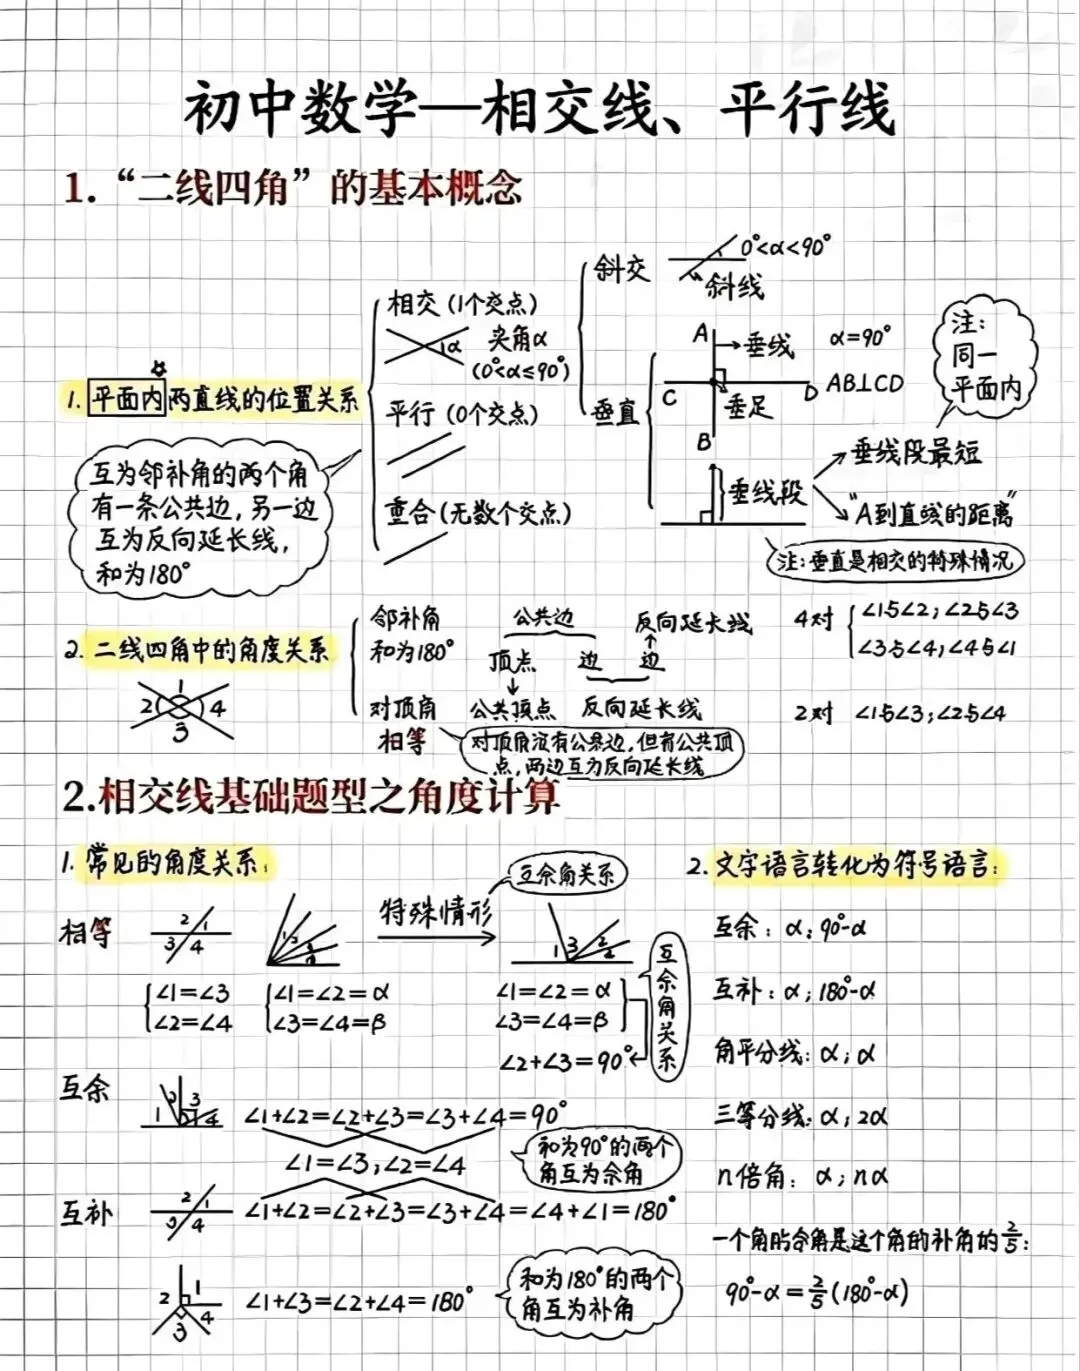 初中数学—相交线、平行线
1.“二线四角”的基本概念
1. 平面内两直线的位置关系
相交 (1个交点)
α 夹角α
(0°<α≤90°)
平行 (0个交点)
重合 (无数个交点)
斜交
0°<α<90°
斜线
垂直
A
垂线
C
D
垂足
B
α=90°
AB⊥CD
垂线段
垂线段最短
“A到直线的距离”
注:
同一
平面内
注:垂直是相交的特殊情况
互为邻补角的两个角
有一条公共边,另一边
互为反向延长线,
和为180°
2. 二线四角中的角度关系
1
2 4
3
邻补角
和为180°
公共边
反向延长线
顶点 边 边
4对
∠1与∠2;∠2与∠3
∠3与∠4;∠4与∠1
对顶角
相等
公共顶点 反向延长线
2对 ∠1与∠3;∠2与∠4
对顶角没有公共边,但有公共顶
点,两边互为反向延长线
2.相交线基础题型之角度计算
1. 常见的角度关系:
相等
2 1
3 4
∠1=∠3
∠2=∠4
∠1=∠2=α
∠3=∠4=β
特殊情形
互余角关系
1 3 2
∠1=∠2=α
∠3=∠4=β
∠2+∠3=90°
互余角关系
互余
1 2 3 4
∠1+∠2=∠2+∠3=∠3+∠4=90°
∠1=∠3;∠2=∠4
和为90°的两个
角互为余角
互补
2 1
3 4
∠1+∠2=∠2+∠3=∠3+∠4=∠4+∠1=180°
2 1
3 4
∠1+∠3=∠2+∠4=180°
和为180°的两个
角互为补角
2. 文字语言转化为符号语言:
互余: α;90°-α
互补: α;180°-α
角平分线: α;α
三等分线: α;2α
n倍角: α;nα
一个角的余角是这个角的补角的2/5:
90°-α=2/5(180°-α)